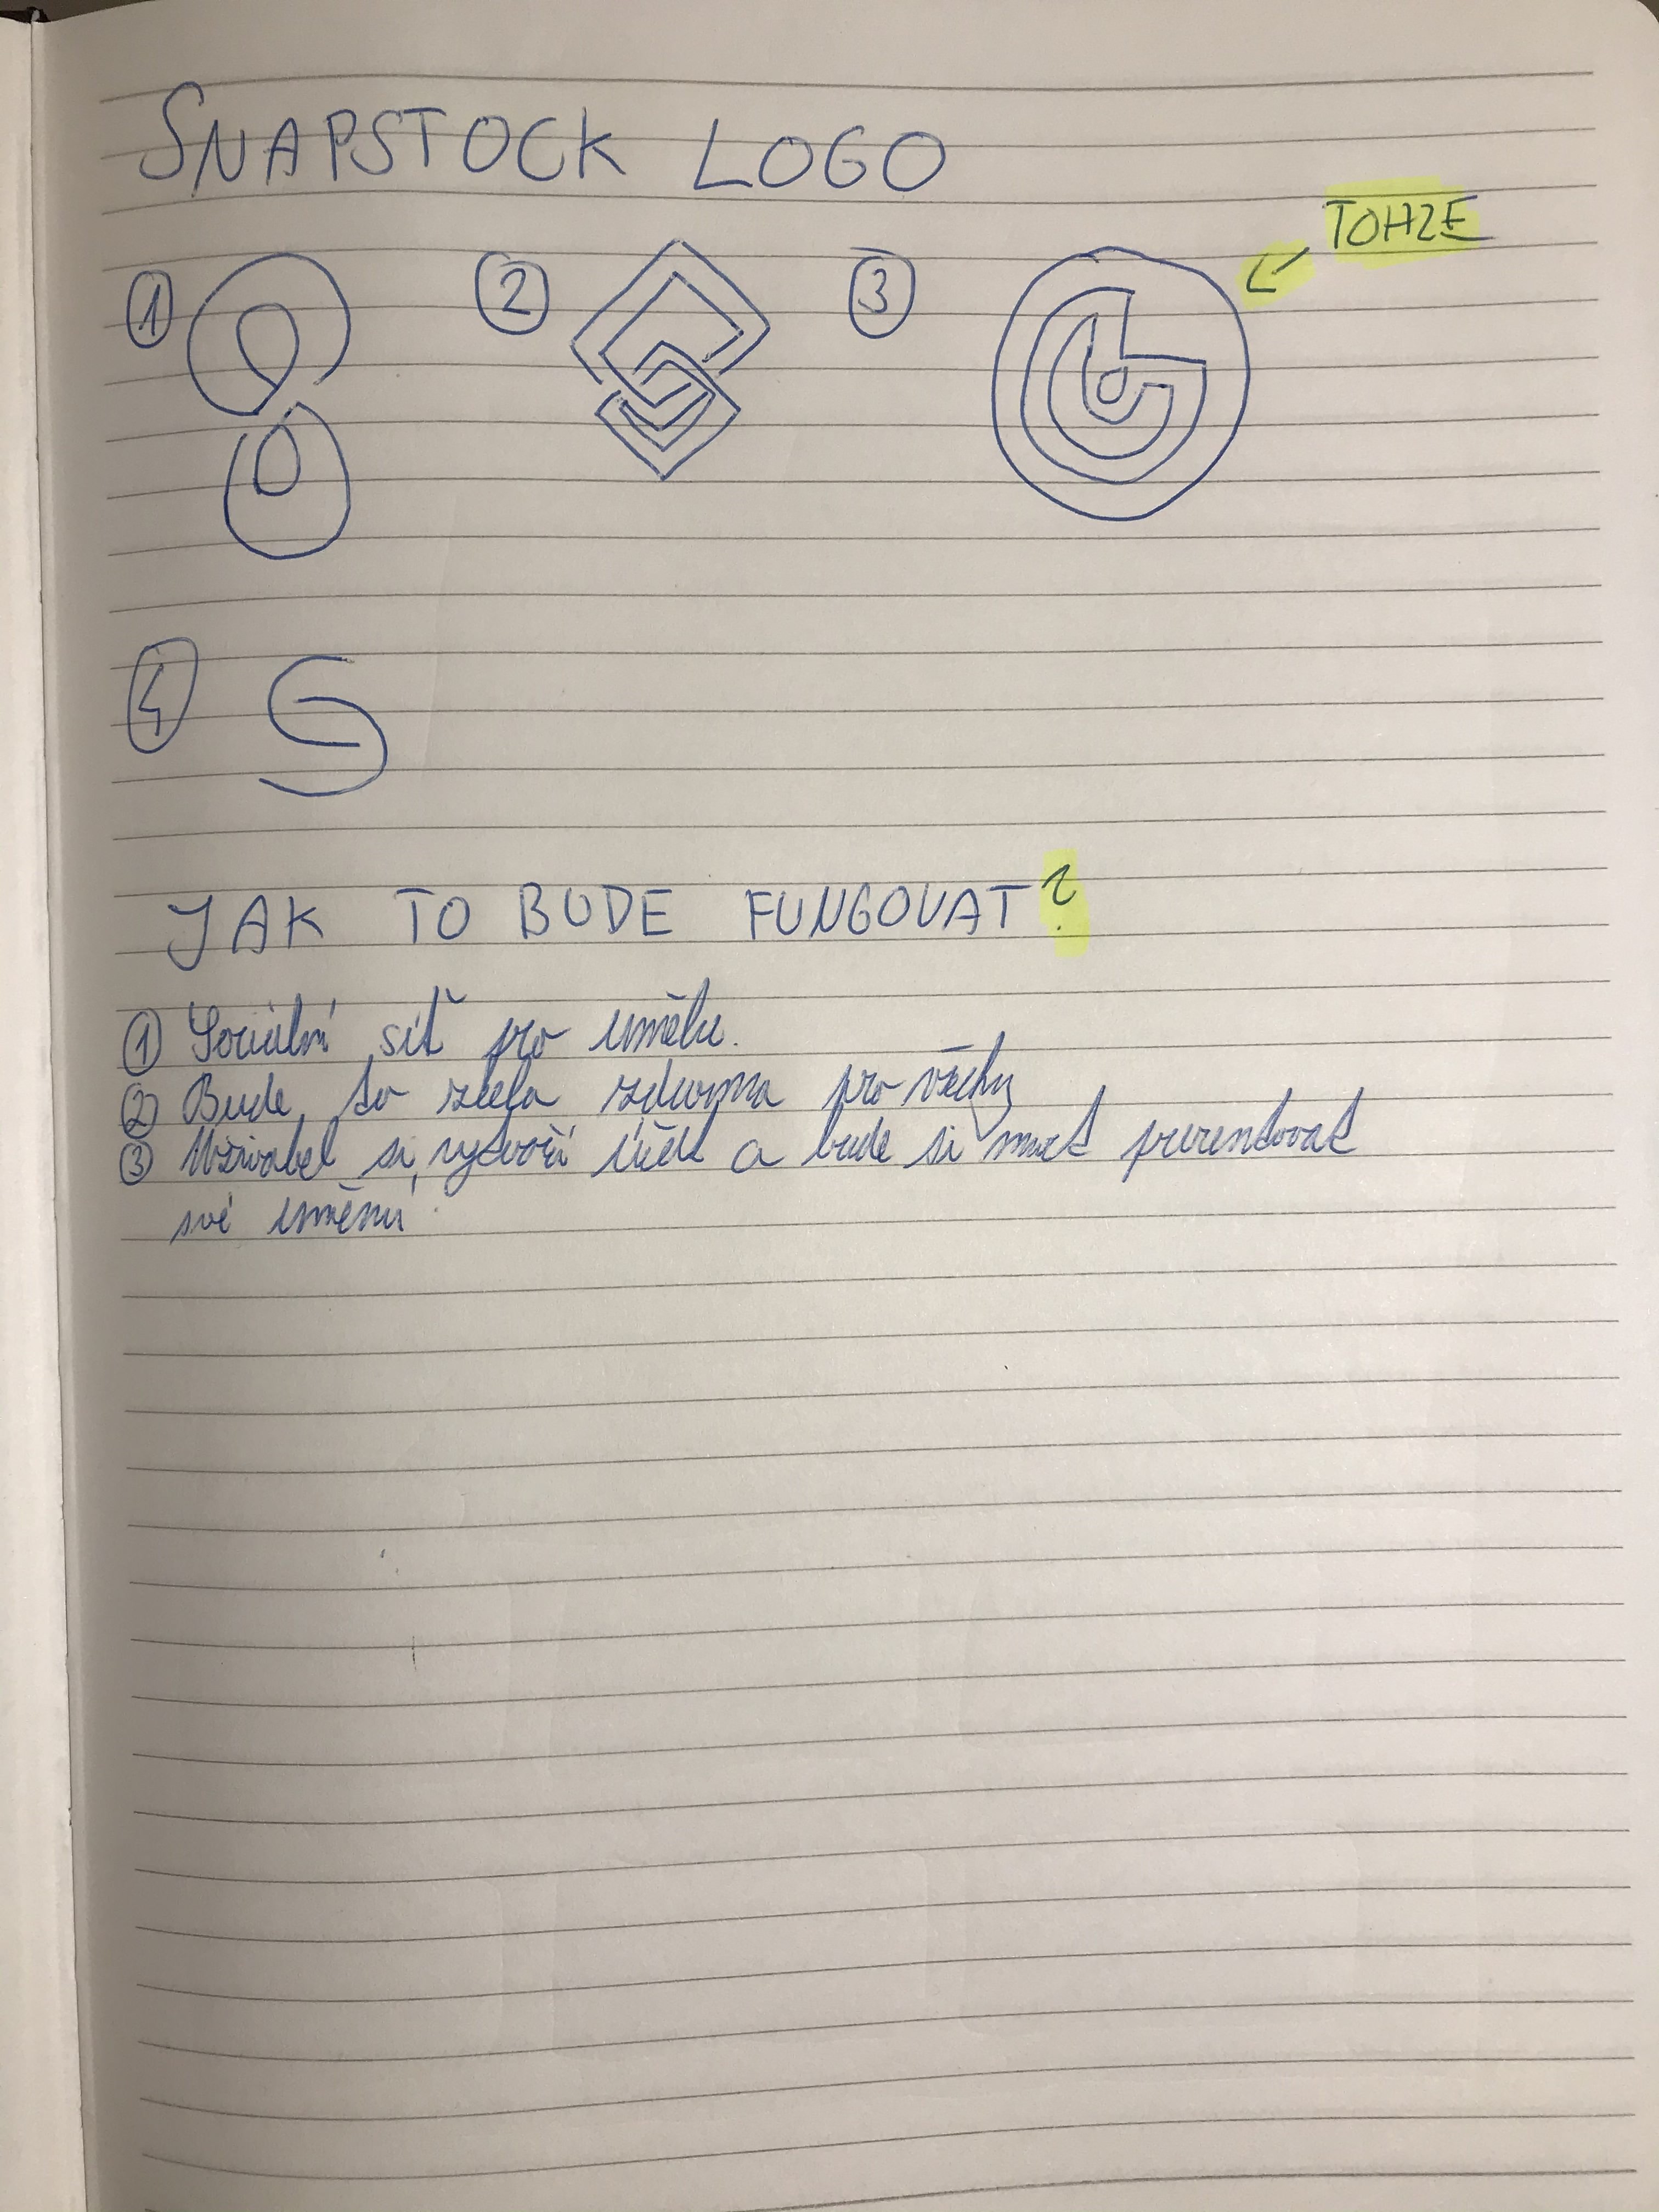 SNAPSTOCK LOGO
TOHLE
1 2 3
4
JAK TO BUDE FUNGOVAT?
1 Sociální síť pro umělce.
2 Bude to zcela zdarma pro všechny
3 Uživatel si vytvoří účet a bude si moct prezentovat
své umění.